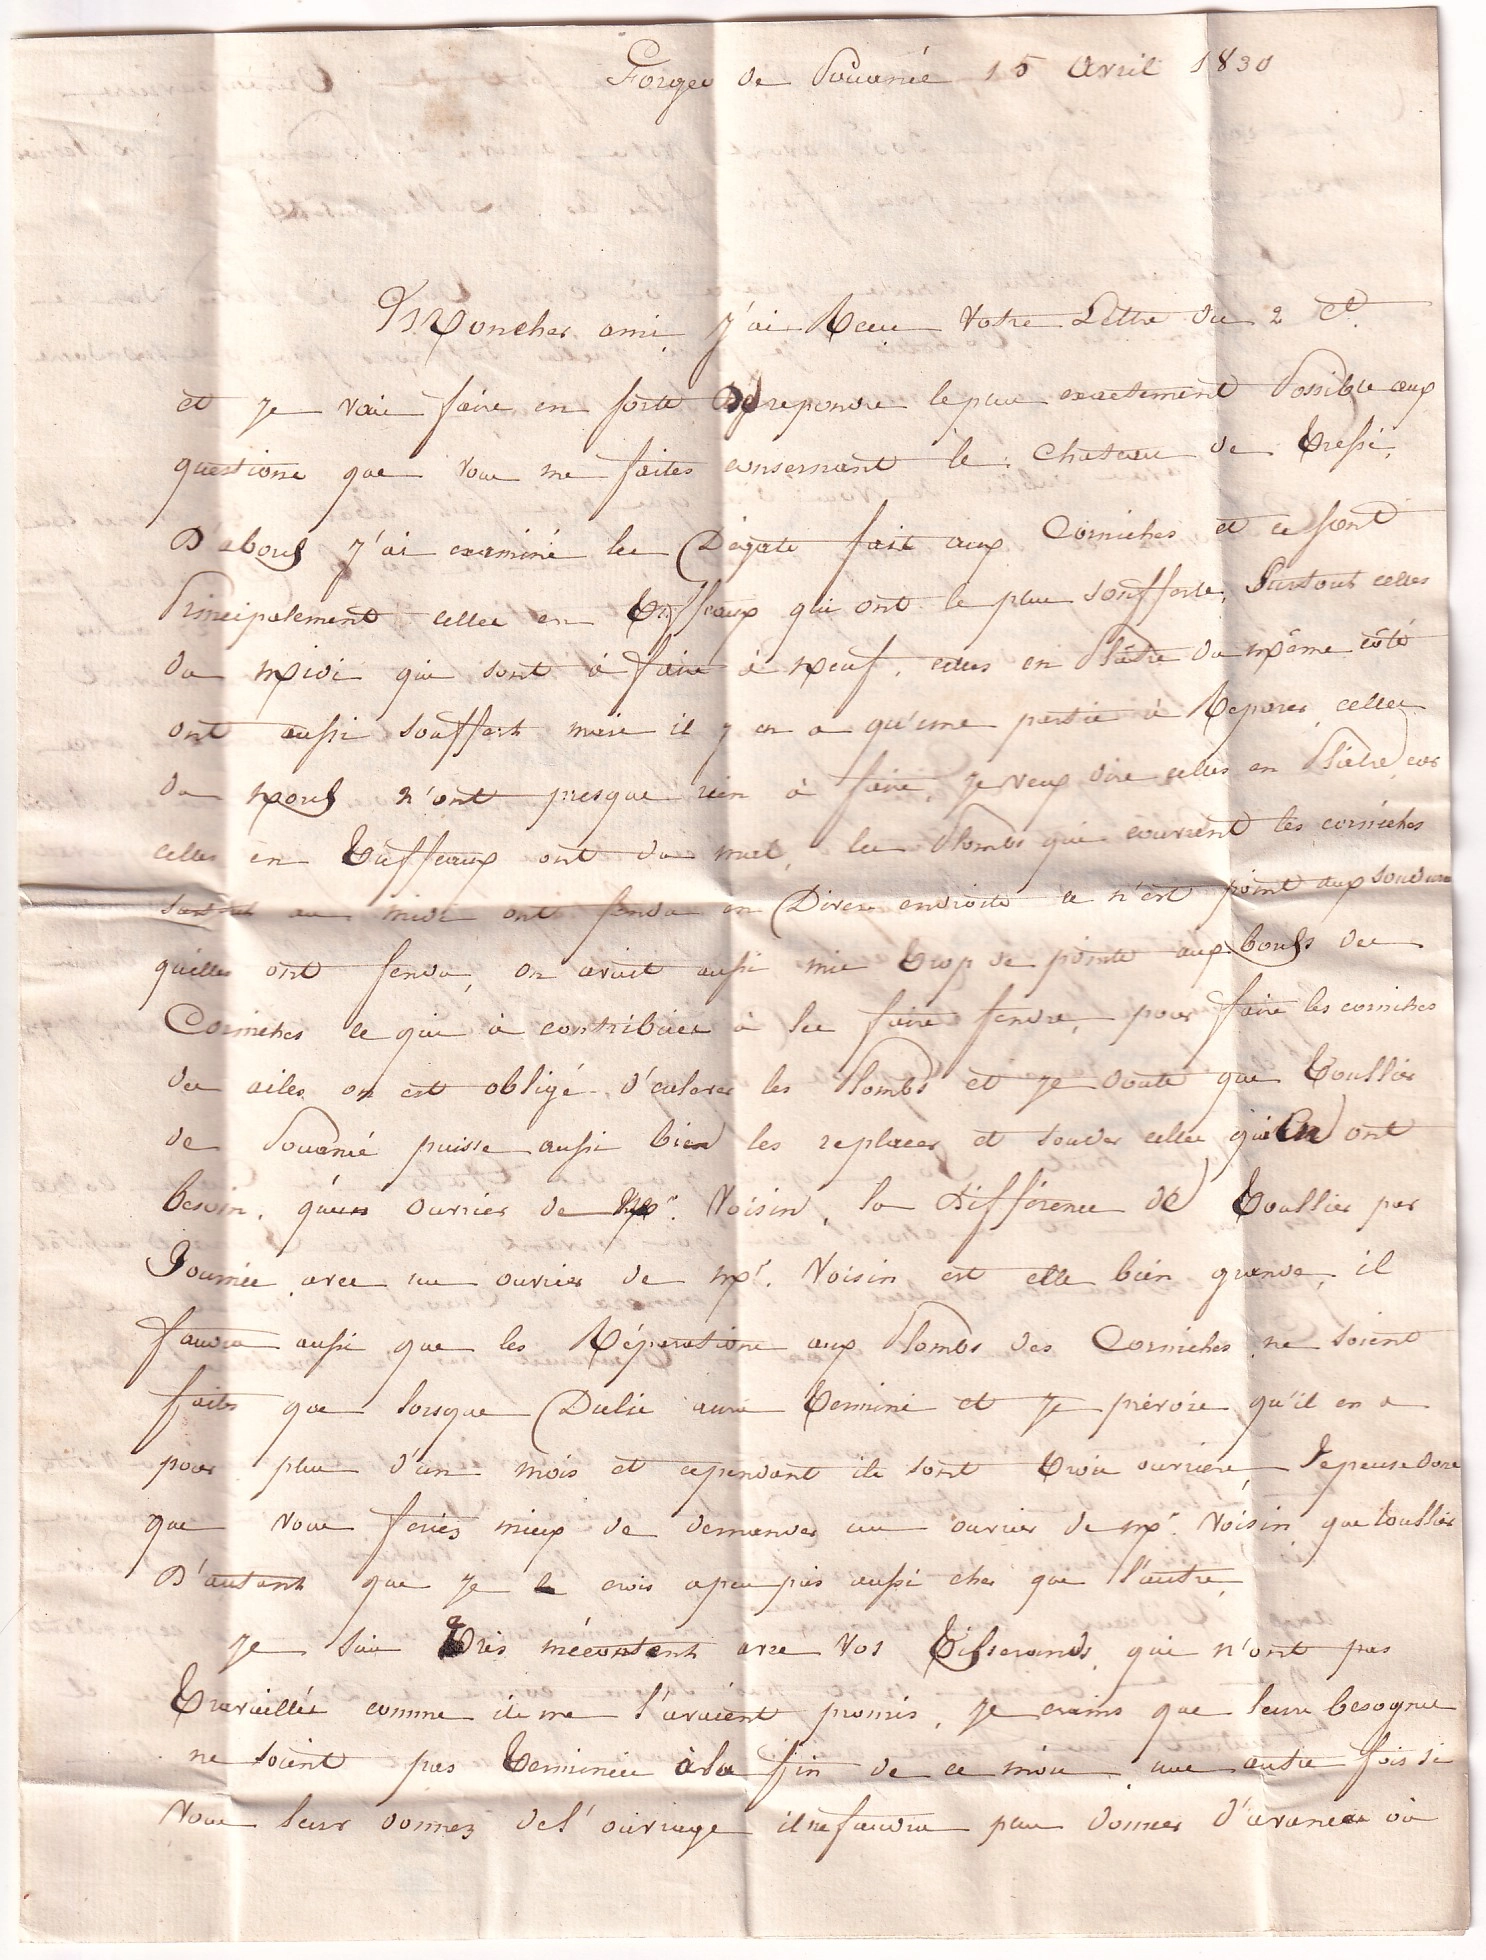 Forges de Pouancé 15 Avril 1830
Moncher ami, J'ai Recu Votre Lettre du 2 Ct.
et je vais faire en sorte de repondre le plus exactement Possible aux
questions que vous me faites consernant le Chateau de Tressé,
D'abord j'ai examiné les Dégats fait aux Corniches et ce sont
Principalement celles en Tuffeaux qui ont le plus soufferte, Surtout celles
du Midi qui sont à faire à Neuf, celles en Plâtre du même côté
ont aussi souffert mais il y en a qu'une partie à Reparer, celles
du Nord n'ont presque rien à faire, je veux dire celles en Plâtre, car
celles en Tuffeaux ont du mal, les Plombs qui couvrent les corniches
surtout au midi ont fendu en Divers endroits ce n'est point aux soudures
quelles ont fendu, on avait aussi mis trop de pointe aux bords des
Corniches ce qui à contribuer à les faire fendre, pour faire les corniches
des ailes on est obligé d'enlever les Plombs et je doute que Toullier
de Pouancé puisse aussi bien les replacer et souder celles qui en ont
besoin, qu'un ouvrier de Mr. Voisin, la différence de Toullier par
Journée avec un ouvrier de Mr. Voisin est elle bien grande, il
faudra aussi que les Réparations aux Plombs des Corniches ne soient
faites que lorsque Delié aura terminé et je prévois qu'il en a
pour plus d'un mois et cependant ils sont trois ouvriers, Je pense donc
que vous feriez mieux de demander un ouvrier de Mr. Voisin que Toullier
D'autant que je le crois apeu près aussi cher que l'autre,
Je suis Très mécontent avec Vos Tisserands, qui n'ont pas
Travaillés comme ils me l'avaient promis, je crains que leur besogne
ne soient pas Terminée à la fin de ce mois, une autre fois si
Vous leur donnez del'ouvrage il ne faudra pas donner d'avances où